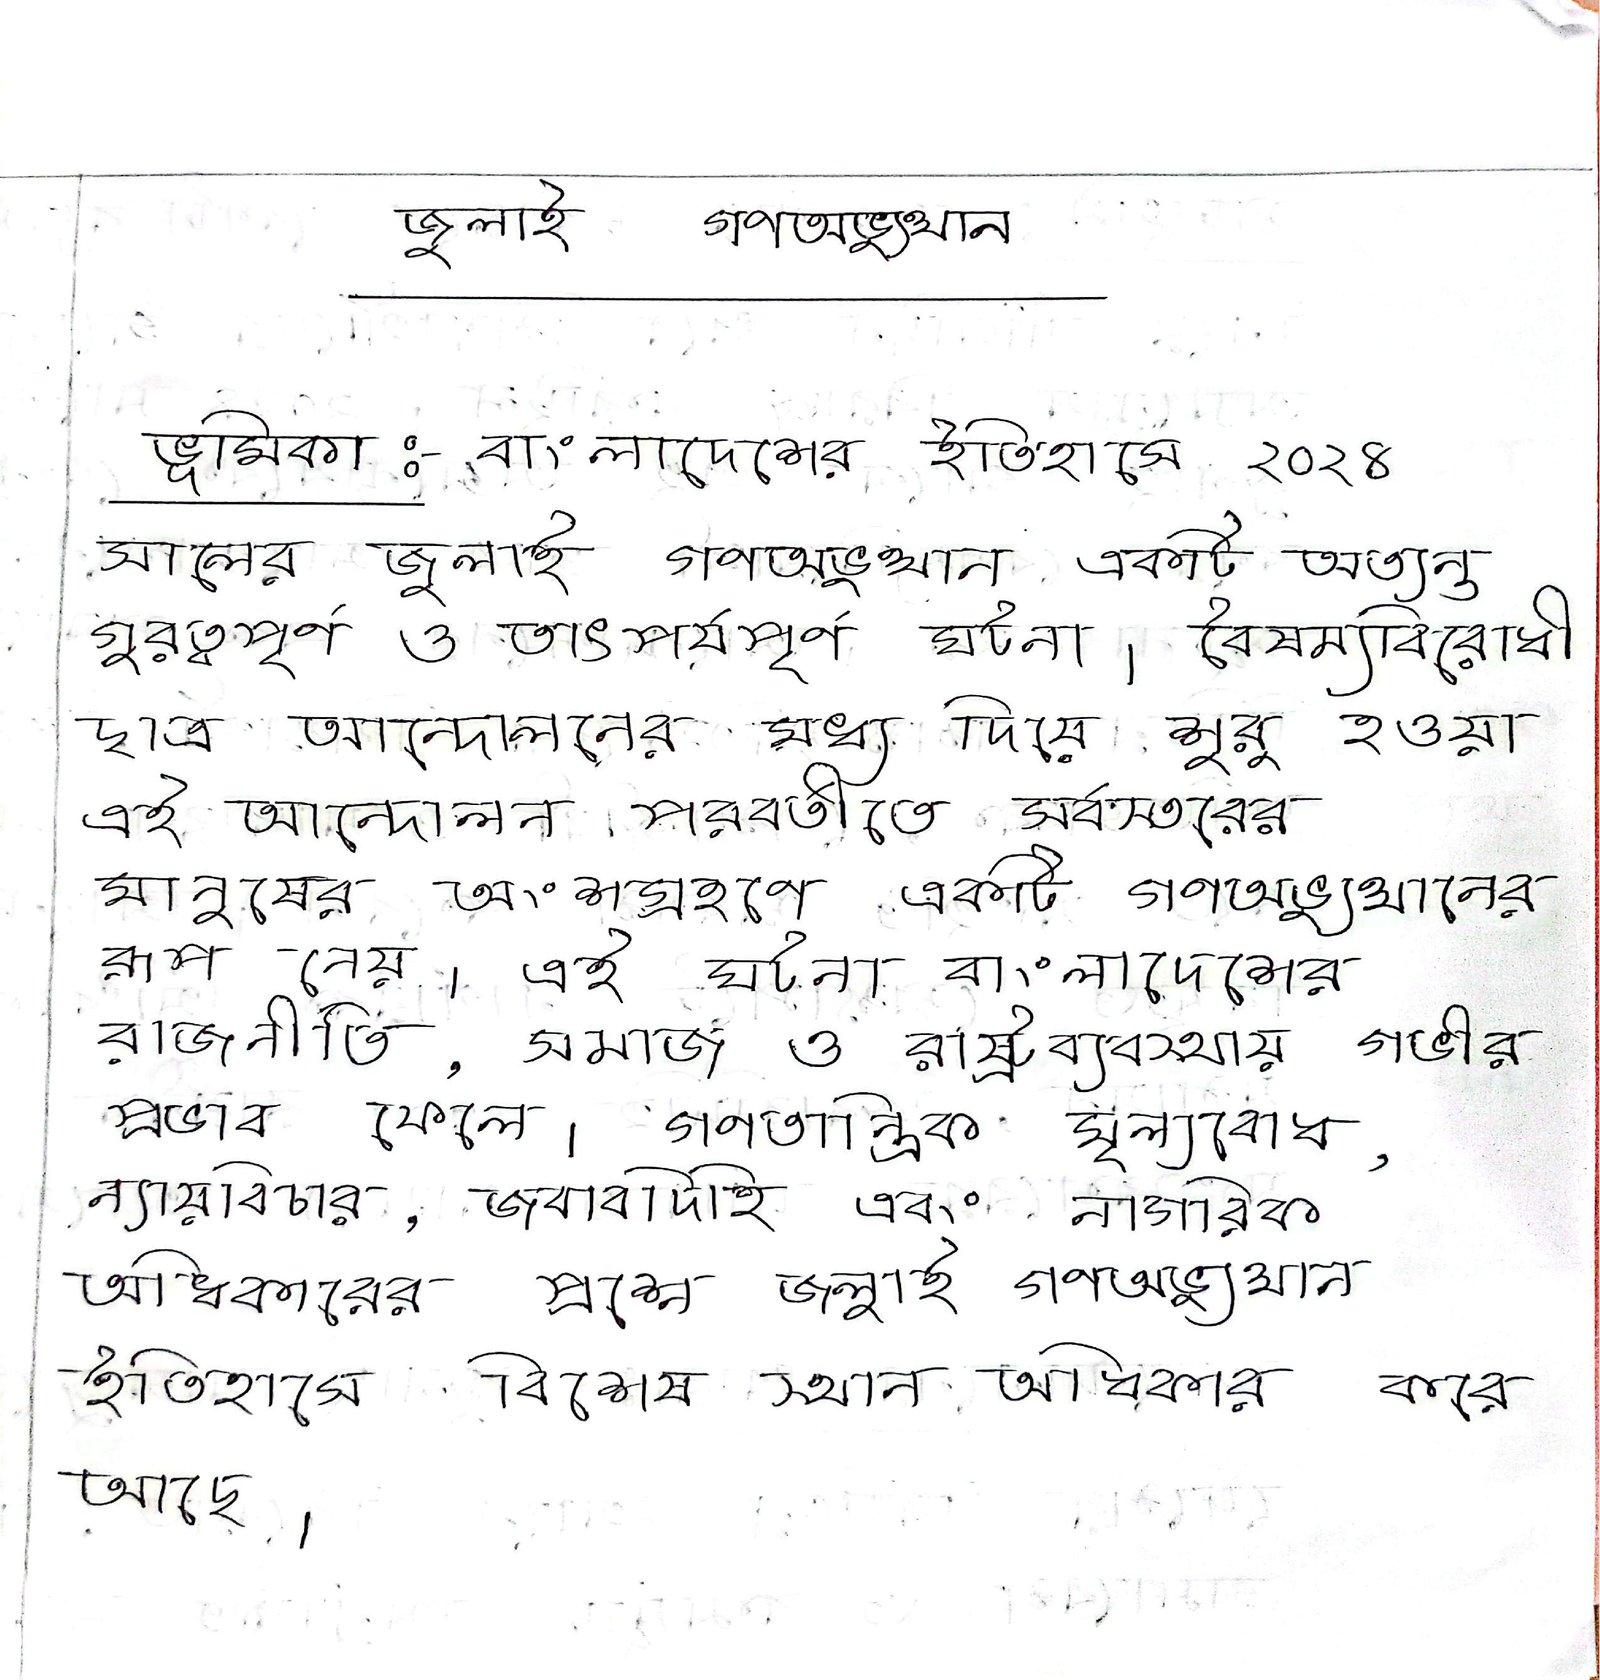 জুলাই গণঅভ্যুত্থান
ভূমিকা :- বাংলাদেশের ইতিহাসে ২০২৪
সালের জুলাই গণঅভুত্থান একটি অত্যন্ত
গুরত্বপূর্ণ ও তাৎপর্যপূর্ণ ঘটনা। বৈষম্যবিরোধী
ছাত্র আন্দোলনের মধ্য দিয়ে শুরু হওয়া
এই আন্দোলন পরবর্তীতে সর্বস্তরের
মানুষের অংশগ্রহণে একটি গণঅভ্যুত্থানের
রূপ নেয়। এই ঘটনা বাংলাদেশের
রাজনীতি, সমাজ ও রাষ্ট্রব্যবস্থায় গভীর
প্রভাব ফেলে। গণতান্ত্রিক মূল্যবোধ,
ন্যায়বিচার, জবাবদিহি এবং নাগরিক
অধিকারের প্রশ্নে জলুাই গণঅভ্যুথান
ইতিহাসে বিশেষ স্থান অধিকার করে
আছে।